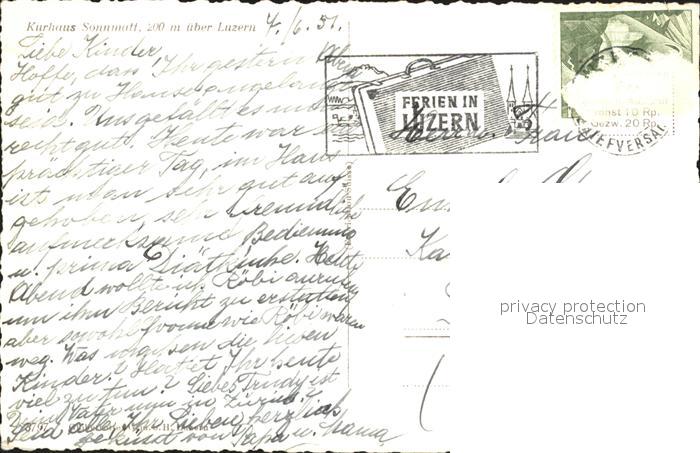 Kurhaus Sonnmatt, 200 m über Luzern 4./6. 51.
Liebe Kinder,
Hoffe, dass Ihr gestern Abend
gut zu Hause angelangt
seid. Uns gefällt es
recht gut. Heute war ein
prächtiger Tag, im Haus
ist man sehr gut auf-
gehoben, sehr freundliche
aufmerksame Bedienung
u. prima Diätküche. Heute
Abend wollte ich Röbi anrufen
um ihm Bericht zu erstatten
aber sowohl Yvonne wie Röbi waren
weg. Was machen die lieben
Kinder? Hattet Ihr heute
viel zu tun? Liebes Trudy ist
Dein Vater nun in Zürich?
Seid alle Ihr Lieben herzlich
geküsst von Papa u. Mama
FERIEN IN
LUZERN
Herrn u. Frau
Ka
sonst 10 Rp.
Bezw. 20 Rp.
BRIEFVERSAND
privacy protection
Datenschutz